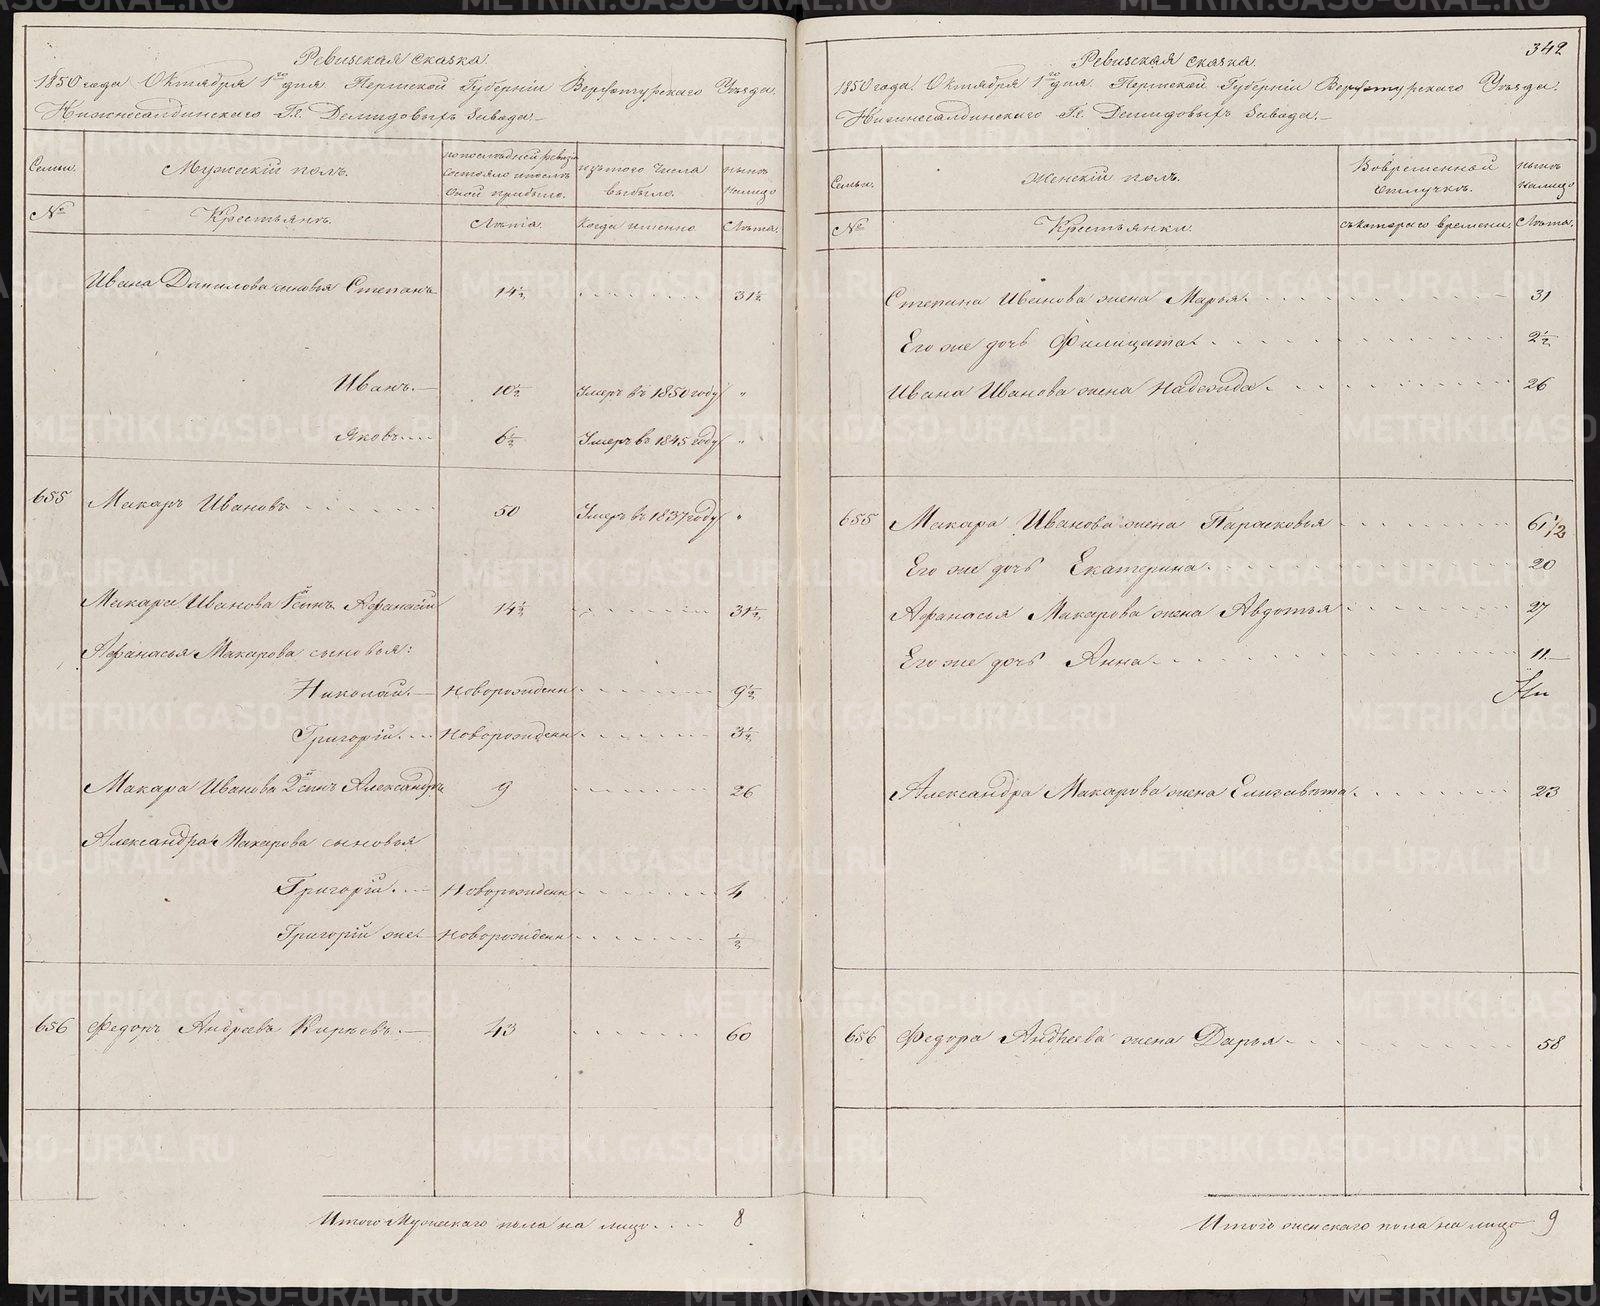 Ревизская сказка.
1850 года Октября 1го дня Пермской Губерніи Верхотурского Уѣзда.
Нижнесалдинского Гг. Демидовыхъ Завода.
Семьи.
Мужескій полъ.
по последней ревизіи состояло и послѣ оной прибыло.
изъ того числа выбыло.
нынѣ на лицо
№
Крестьянъ.
Лѣта.
Когда именно
Лѣта.
Ивана Данилова сыновья Степанъ 14½ 31½
Иванъ. 10½ Умеръ въ 1850 году "
Яковъ 6½ Умеръ въ 1845 году "
655 Макаръ Ивановъ 50 Умеръ въ 1837 году "
Макара Иванова 1й сынъ Афанасій 14½ 31½
Афанасья Макарова сыновья:
Николай. Новорожден 9½
Григорій. Новорожден 3½
Макара Иванова 2й сынъ Александръ 9 26
Александра Макарова сыновья
Григорій. Новорожден 4
Григорій же Новорожден ½
656 Федоръ Андреевъ Кирѣевъ. 43 60
Итого Мужескаго пола на лицо 8
342
Ревизская сказка.
1850 года Октября 1го дня Пермской Губерніи Верхотурского Уѣзда.
Нижнесалдинского Гг. Демидовыхъ Завода.
Семьи.
Женскій полъ.
Во временной отлучкѣ.
нынѣ на лицо
№
Крестьянки.
съ котораго времени.
Лѣта.
Степана Иванова жена Марья. 31
Его же дочь Филицата. 2½
Ивана Иванова жена Надежда. 26
655 Макара Иванова жена Парасковья 61 1/2
Его же дочь Екатерина. 20
Афанасья Макарова жена Авдотья 27
Его же дочь Анна. 11
Александра Макарова жена Елизавета. 23
656 Федора Андреева жена Дарья 58
Итого женскаго пола на лицо 9
METRIKI.GASO-URAL.RU